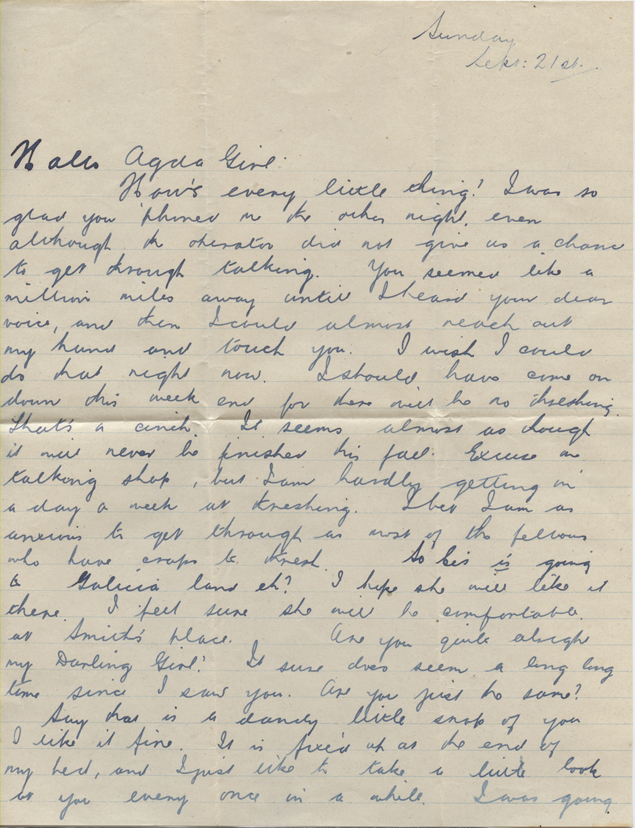 Sunday
Sept: 21st.
Hallo Agda Girl:
How's every little thing! I was so
glad you 'phoned me the other night, even
although the operator did not give us a chance
to get through talking. You seemed like a
million miles away until I heard your dear
voice, and then I could almost reach out
my hand and touch you. I wish I could
do that right now. I should have come on
down this week end for there will be no threshing.
that's a cinch. It seems almost as though
it will never be finished this fall. Excuse me
talking shop, but I am hardly getting in
a day a week at threshing. I bet I am as
anxious to get through as most of the fellows
who have crops to thresh. So is going
to Galicia land eh? I hope she will like it
there. I feel sure she will be comfortable
at Smith's place. Are you quite alright
my Darling Girl? It sure does seem a long long
time since I saw you. Are you just the same?
Say that is a dandy little snap of you
I like it fine. It is fixed up at the end of
my bed, and I just like to take a little look
at you every once in a while. I was going